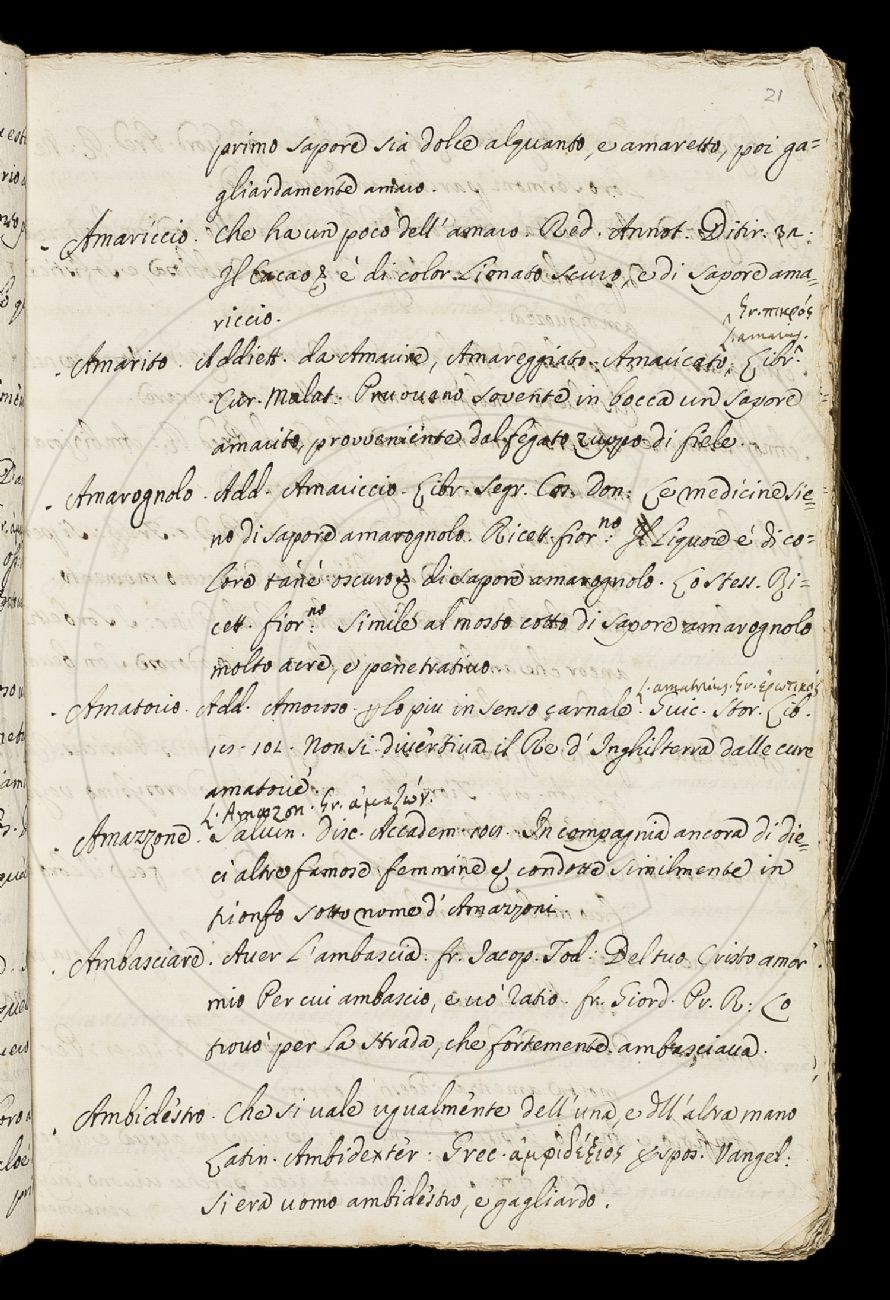 21
primo sapore sia dolce alquanto, e amaretto, poi ga=
gliardamente amaro.
Amariccio. Che ha un poco dell' amaro. Red. Annot. Ditir. 31.
Il Cacao & è di color Lionato scuro, e di sapore ama=
riccio.
Gr. πικρός
L. amarus.
Amarito. Addiett. da Amarire, Amareggiato, Amaricato. Libr.
Cur. Malat. Pruovano sovente in bocca un sapore
amarito, provveniente dal fegato zuppo di fiele.
Amarognolo. Add. Amariccio. Libr. Segr. Cos. Don. Le medicine sie=
no di sapore amarognolo. Ricett. fior.no Il Liquore é di co=
lore tané oscuro & di sapore amarognolo. Lo stess. Ri=
cett. fior.no Simile al mosto cotto di sapore amarognolo
molto acre, e penetrativo.
L. amatorius. Gr. ἐρωτικός
Amatorio. Add. Amoroso lo piu in senso carnale. Guic. Stor. Lib.
Non si divertiva il Re d' Inghilterra dalle cure
amatorie.
L. Amazon. Gr. ἀμαζών.
Amazzone. Salvin. Disc. Accadem. In compagnia ancora di die=
ci altre famose femmine & condotte similmente in
trionfo sotto nome d' Amazzoni.
Ambasciare. Aver L' ambascia. fr. Jacop. Tod. Del tuo Cristo amor
mio Per cui ambascio, e vó ratio. fr. Giord. Pr. R. Lo
trovó per la strada, che fortemente ambasciava.
Ambidestro. Che si vale ugualmente dell' una, e dll' altra mano
Latin. Ambidexter. Grec. ἀμφιδέξιος Espos. Vangel.
Si era uomo ambidestro, e gagliardo.